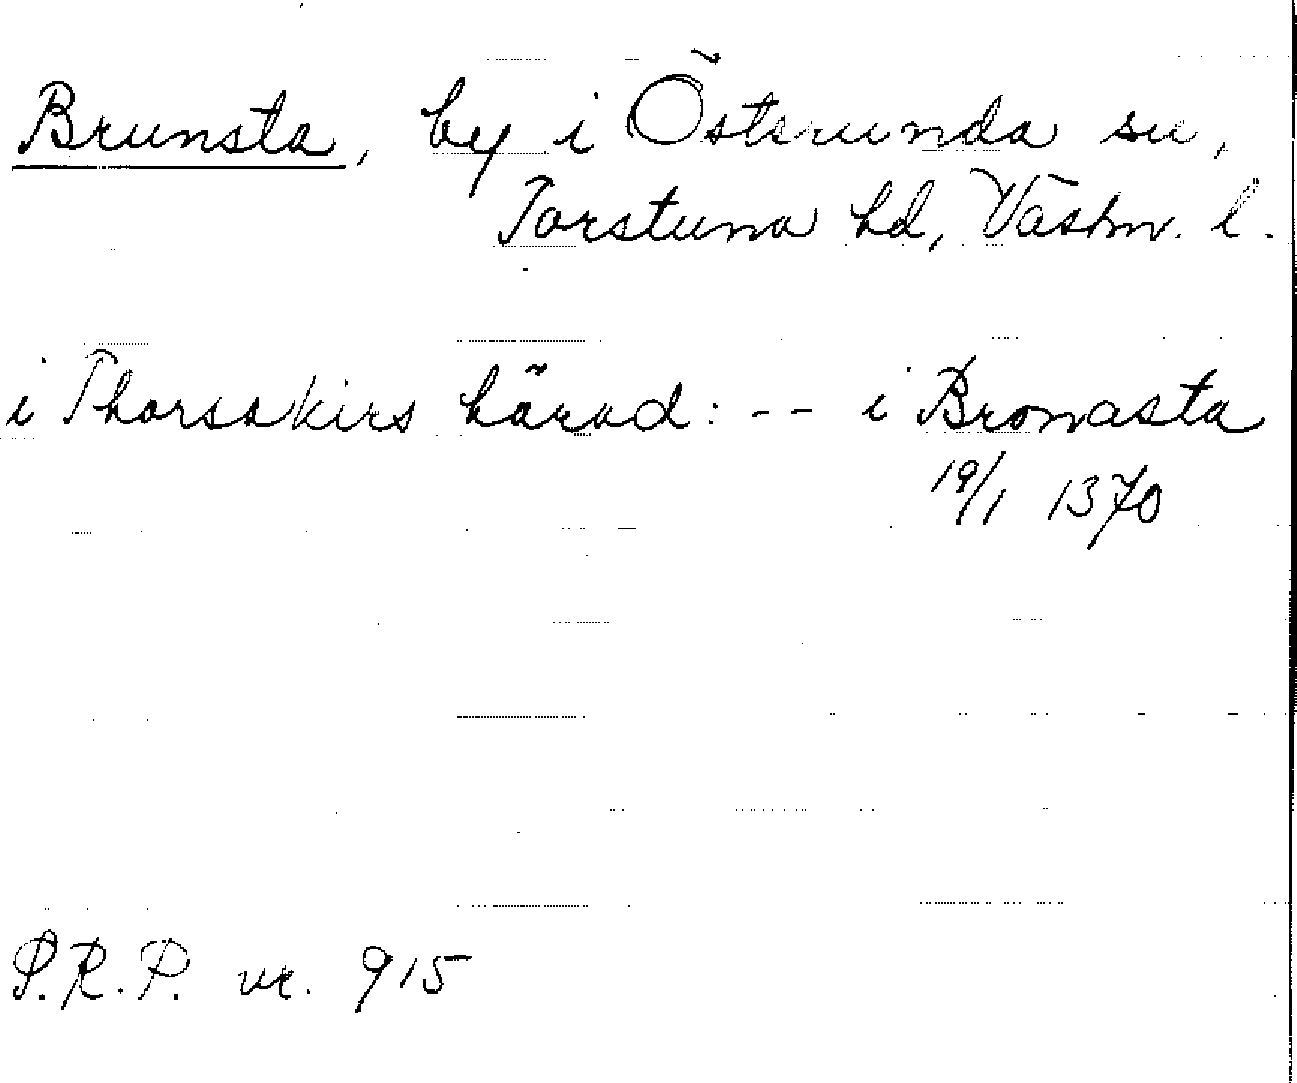 Brunsta, by i Österunda sn,
Torstuna hd, Västm. l.
i Thorsakirs härad: -- i Bronasta
19/1 1370
P.R.P. nr. 915